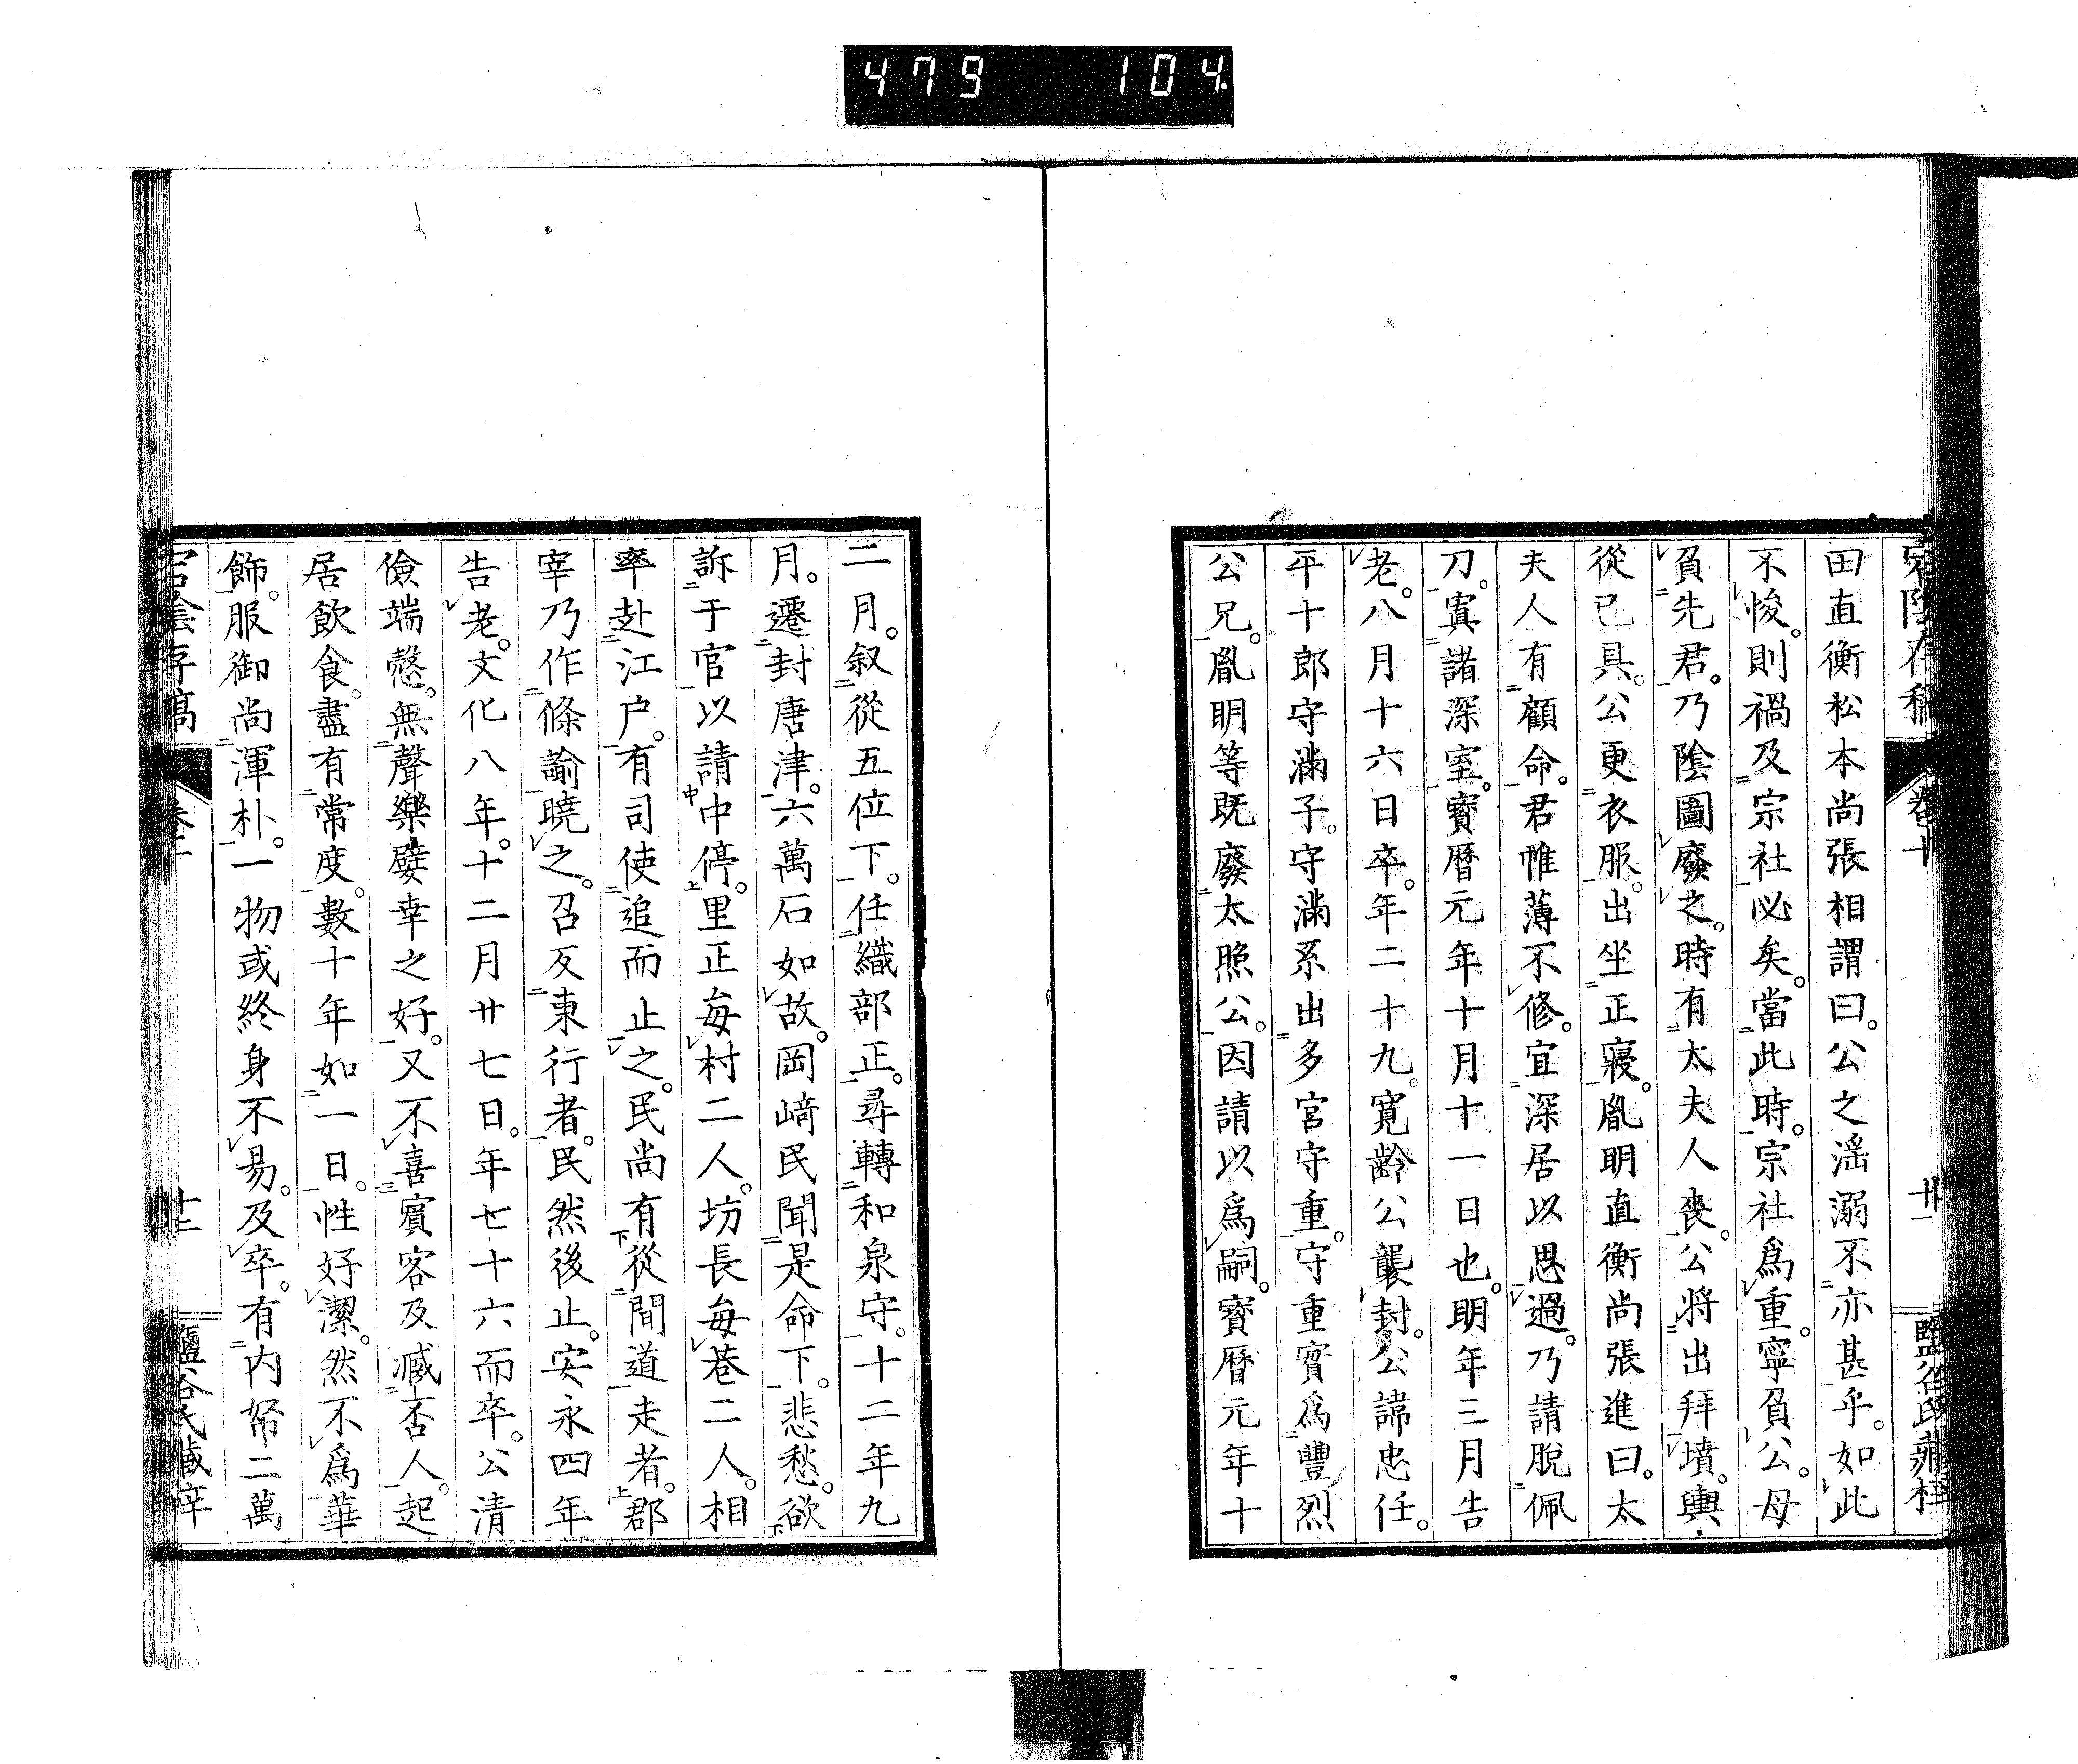 479 104
田直衡松本尚張相謂曰。公之滛溺不亦甚乎。如此
不悛。則禍及宗社必矣。當此時。宗社爲重。寧負公。母
負先君。乃陰圖廢之。時有太夫人喪。公将出拜墳。輿
從已具。公更衣服。出坐正寢。胤明直衡尚張進曰。太
夫人有顧命。君惟薄不修。宜深居以思過。乃請脫佩
刀。寘諸深室。寳曆元年十月十一日也。明年三月告
老。八月十六日卒。年二十九。寛齡公襲封。公諱忠任。
平十郎守滿子。守滿系出多宮守重。守重實爲豐烈
公兄。胤明等既廢太照公。因請以爲嗣。寳曆元年十
二月。叙從五位下。任織部正。尋轉和泉守。十二年九
月。遷封唐津。六萬石如故。岡﨑民聞是命下。悲愁。欲
訴于官以請中停。里正每村二人。坊長每巷二人。相
率赴江户。有司使追而止之。民尚有從間道走者。郡
宰乃作條諭曉之。召反東行者。民然後止。安永四年
告老。文化八年。十二月廿七日。年七十六而卒。公清
儉端愨。無聲樂嬖幸之好。又不喜賓客及臧否人。起
居飲食。盡有常度。數十年如一日。性好潔。然不爲華
飾。服御尚渾朴。一物或終身不易。及卒。有内帑二萬